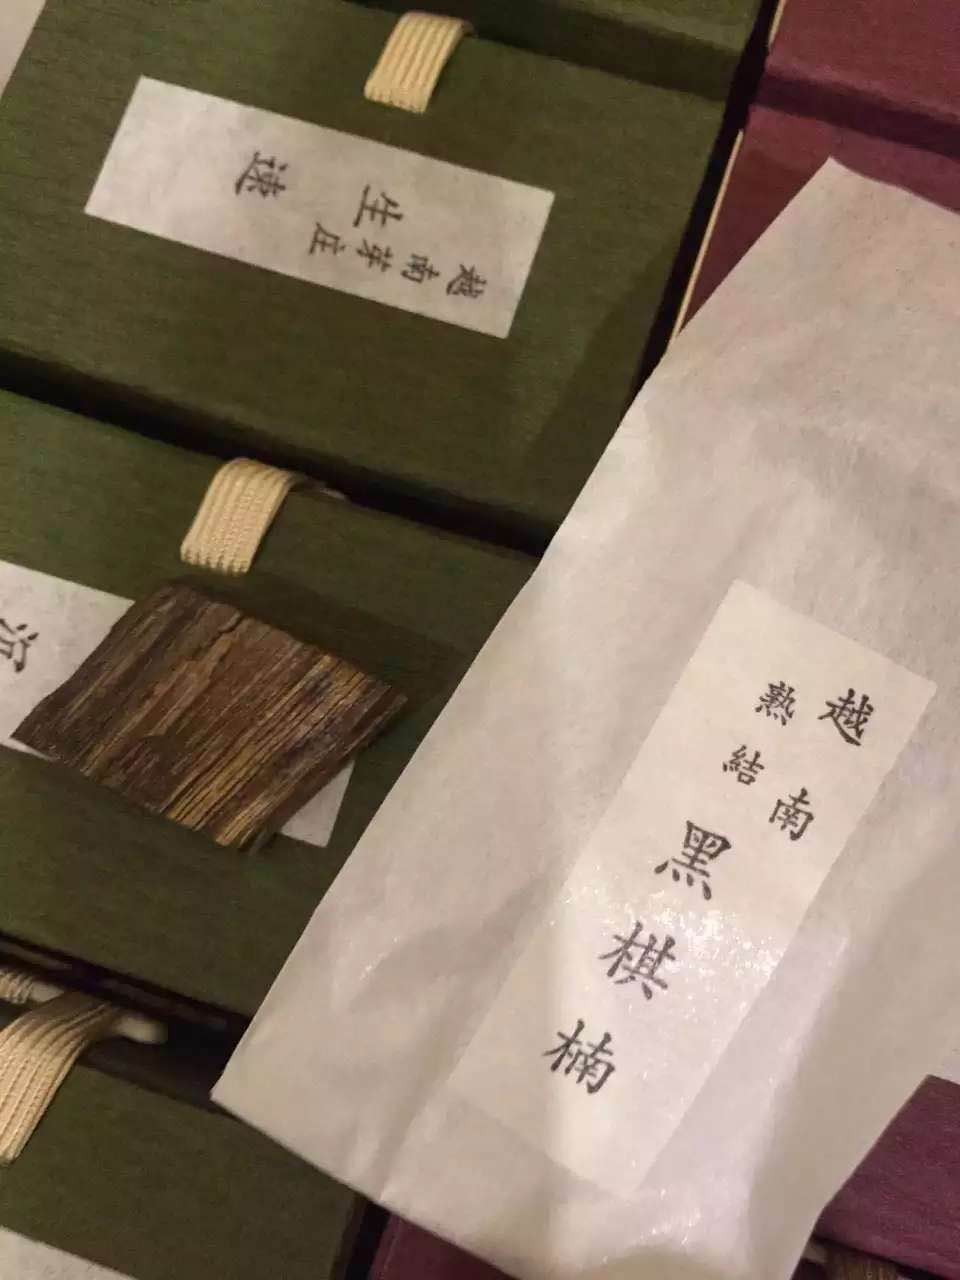 越南芽庄
生速
沉
越南
熟結
黑棋楠